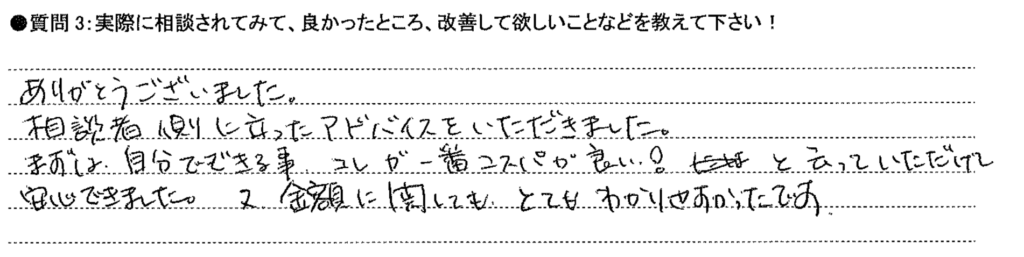 ●質問3:実際に相談されてみて、良かったところ、改善して欲しいことなどを教えて下さい！
ありがとうございました。
相談者側に立ったアドバイスをいただきました。
まずは、自分でできる事、コレが一番コスパが良い！と云っていただけて
安心できました。又金額に関しても、とてもわかりやすかったです。